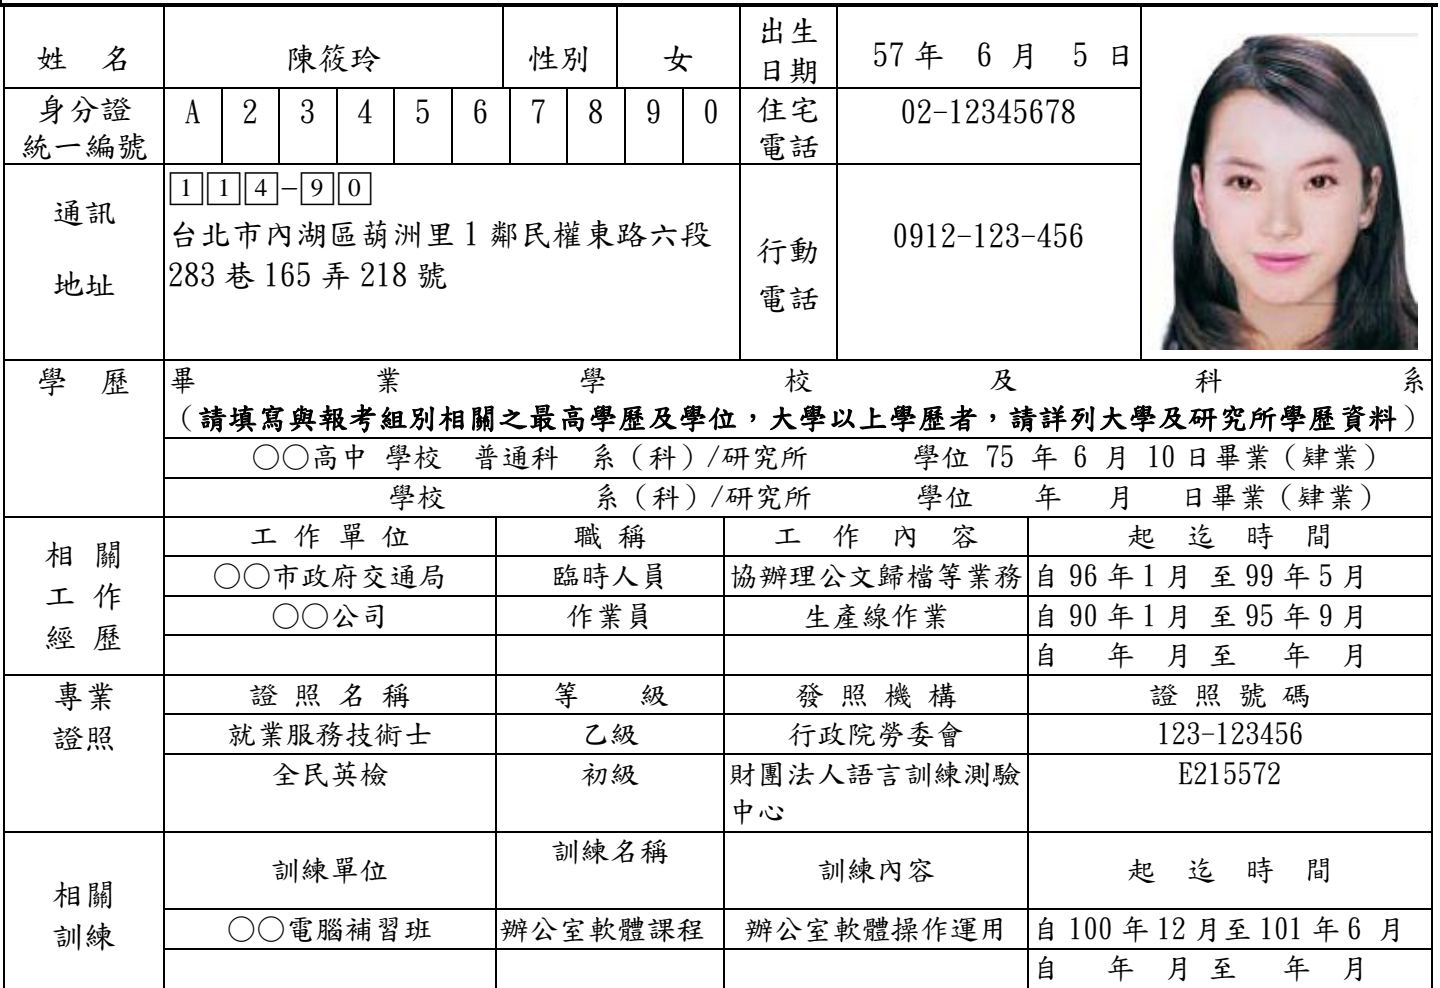 姓 名 陳筱玲 性別 女 出生日期 57年 6月 5日
身分證統一編號 A 2 3 4 5 6 7 8 9 0 住宅電話 02-12345678
通訊地址 114-90
台北市內湖區葫洲里1鄰民權東路六段
283巷165弄218號
行動電話 0912-123-456
學 歷 畢 業 學 校 及 科 系
（請填寫與報考組別相關之最高學歷及學位，大學以上學歷者，請詳列大學及研究所學歷資料）
○○高中 學校 普通科 系（科）/研究所 學位 75 年 6 月 10日畢業（肄業）
學校 系（科）/研究所 學位 年 月 日畢業（肄業）
相關工作經歷 工作單位 職稱 工作內容 起迄時間
○○市政府交通局 臨時人員 協辦理公文歸檔等業務 自96年1月 至99年5月
○○公司 作業員 生產線作業 自90年1月 至95年9月
自 年 月至 年 月
專業證照 證照名稱 等級 發照機構 證照號碼
就業服務技術士 乙級 行政院勞委會 123-123456
全民英檢 初級 財團法人語言訓練測驗中心 E215572
相關訓練 訓練單位 訓練名稱 訓練內容 起迄時間
○○電腦補習班 辦公室軟體課程 辦公室軟體操作運用 自100年12月至101年6 月
自 年 月至 年 月